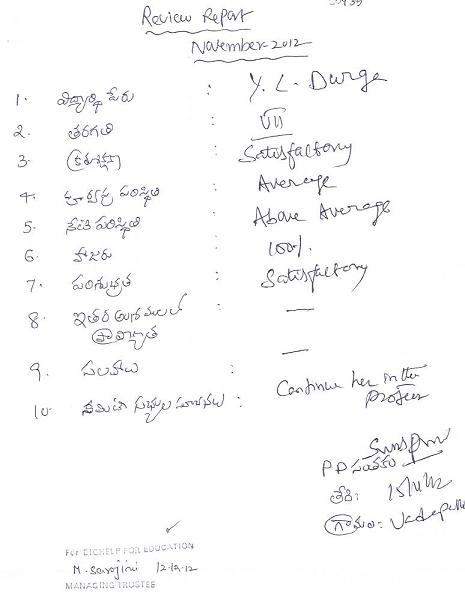 Review Report
November-2012
1. విద్యార్థి పేరు : Y. L. Durga
2. తరగతి : VII
3. క్రమశిక్షణ : Satisfactory
4. పూర్వపు పరిస్థితి : Average
5. నేటి పరిస్థితి : Above Average
6. హాజరు : 100%
7. పరిశుభ్రత : Satisfactory
8. ఇతర అంశములలో : —
ప్రావీణ్యత
9. సలహాలు : —
10. కమిటీ సభ్యుల సూచనలు : Continue her in the
P.D సంతకం
తేది: 15/11/12
గ్రామం:
For EICHELP FOR EDUCATION
M. Sarojini 12-12-12
MANAGING TRUSTEE